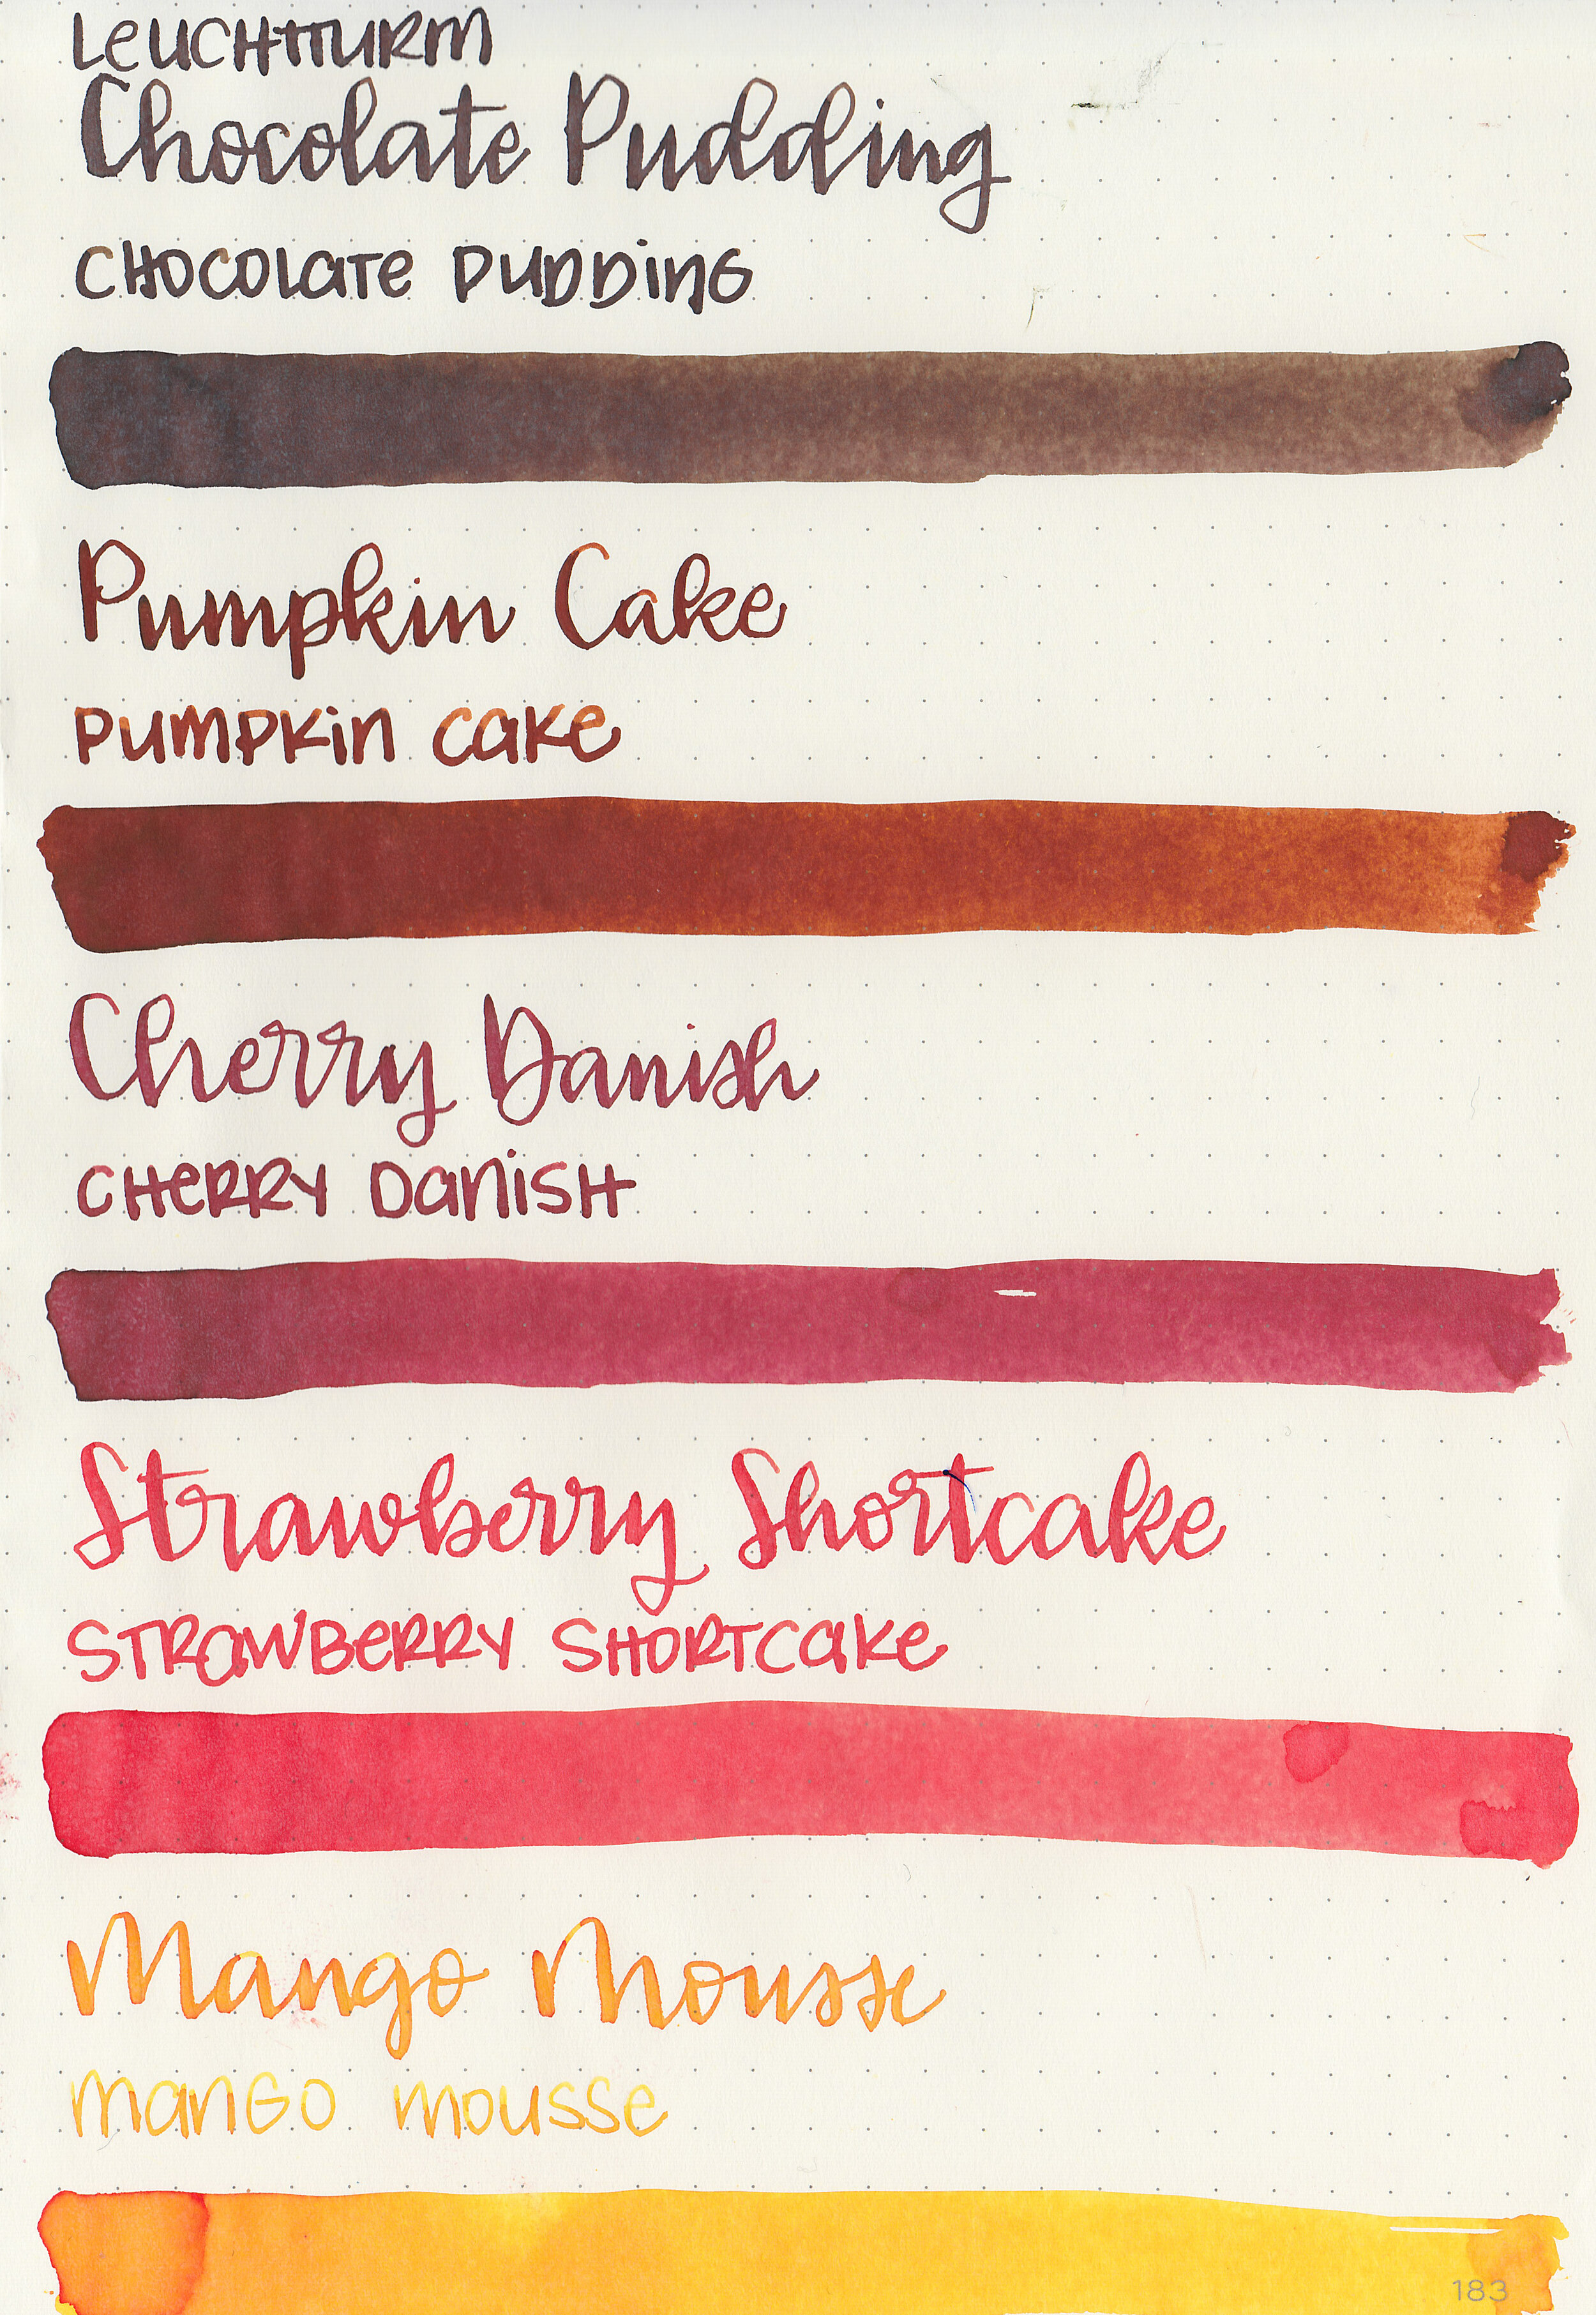 LEUCHTTURM
Chocolate Pudding
CHOCOLATE PUDDING
Pumpkin Cake
PUMPKIN CAKE
Cherry Danish
CHERRY DANISH
Strawberry Shortcake
STRAWBERRY SHORTCAKE
Mango Mousse
MANGO MOUSSE
183